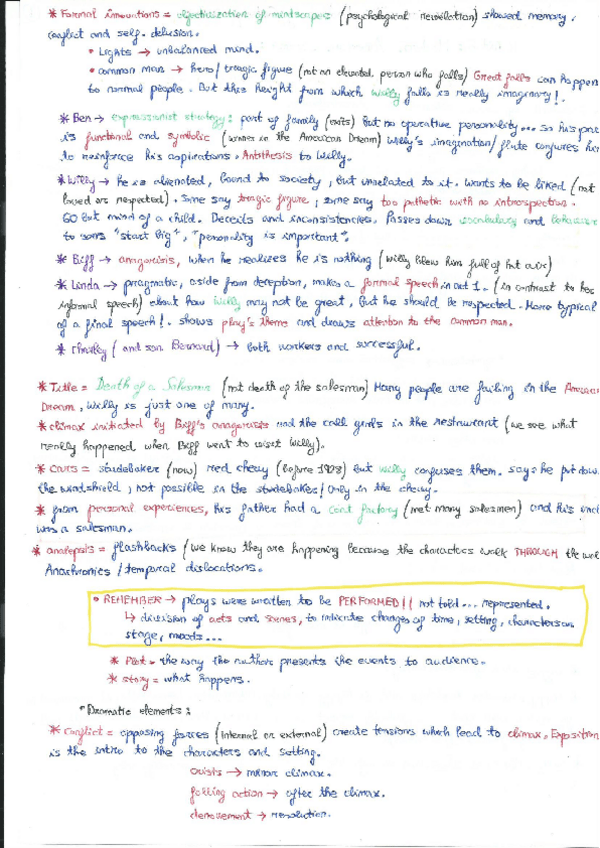 * Formal innovations = objectivization of mindscapes (psychological revelation) showed memory,
conflict and self-delusion.
• Lights → unbalanced mind.
• common man → hero/tragic figure (not an elevated person who falls) Great falls can happen
to normal people. But the height from which Willy falls is really imaginary!.
* Ben → expressionist strategy: part of family (exits) but no operative personality... so his par
is functional and symbolic (in the American Dream) Willy's imagination/flute conjures hi
to reinforce his aspirations. Antithesis to Willy.
* Willy → he is alienated, bound to society, but unrelated to it. Wants to be liked (not
loved or respected). Some say tragic figure; some say too pathetic with no introspection.
60 but mind of a child. Deceits and inconsistencies. Passes down vocabulary and behaviour
to sons "start big", "personality is important".
* Biff → anagorisis, when he realizes he is nothing (Willy blew him full of hot air)
* Linda → pragmatic, aside from deception, makes a formal speech in act 1. (in contrast to her
informal speech) about how Willy may not be great, but he should be respected. More typical
of a final speech!. shows play's theme and draws attention to the common man.
* Charley (and son Bernard) → both workers and successful.
* Title = Death of a Salesman (not death of the salesman) Many people are failing in the America
Dream, Willy is just one of many.
* climax initiated by Biff's anagorisis and the call girls in the restaurant (we see what
really happened when Biff went to visit Willy).
* cars = studebaker (now) red chevy (before 1928) but Willy confuses them. says he put down
the windshield, not possible in the studebaker/only in the chevy.
* from personal experiences, his father had a coat factory (met many salesmen) and his uncl
was a salesman.
* analepsis = flashbacks (we know they are happening because the characters walk THROUGH the wal
Anachronies/temporal dislocations.
• REMEMBER → plays were written to be PERFORMED!! not told... represented.
↳ division of acts and scenes, to indicate changes of time, setting, characters on
stage, moods...
* Plot = the way the author presents the events to audience.
* story = what happens.
• Dramatic elements:
* Conflict = opposing forces (internal or external) create tensions which lead to climax, Exposition
is the intro to the characters and setting.
crisis → minor climax.
falling action → after the climax.
denouement → resolution.